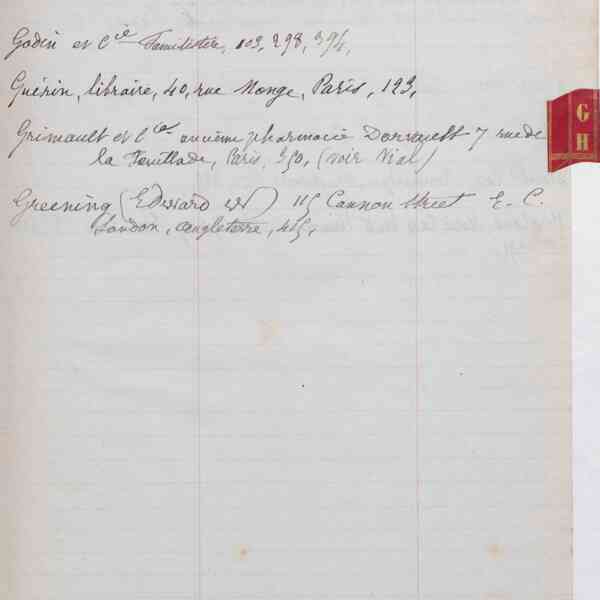 Godin et Cie Familistère, 103, 298, 394,
Guérin, libraire, 40, rue Monge, Paris, 123,
Grimault et Cie ancienne pharmacie Dorvault 7 rue de
la Feuillade, Paris, 350, (voir Vial)
Greening (Edward W) 115 Cannon Street E. C.
London, Angleterre, 415,
G
H